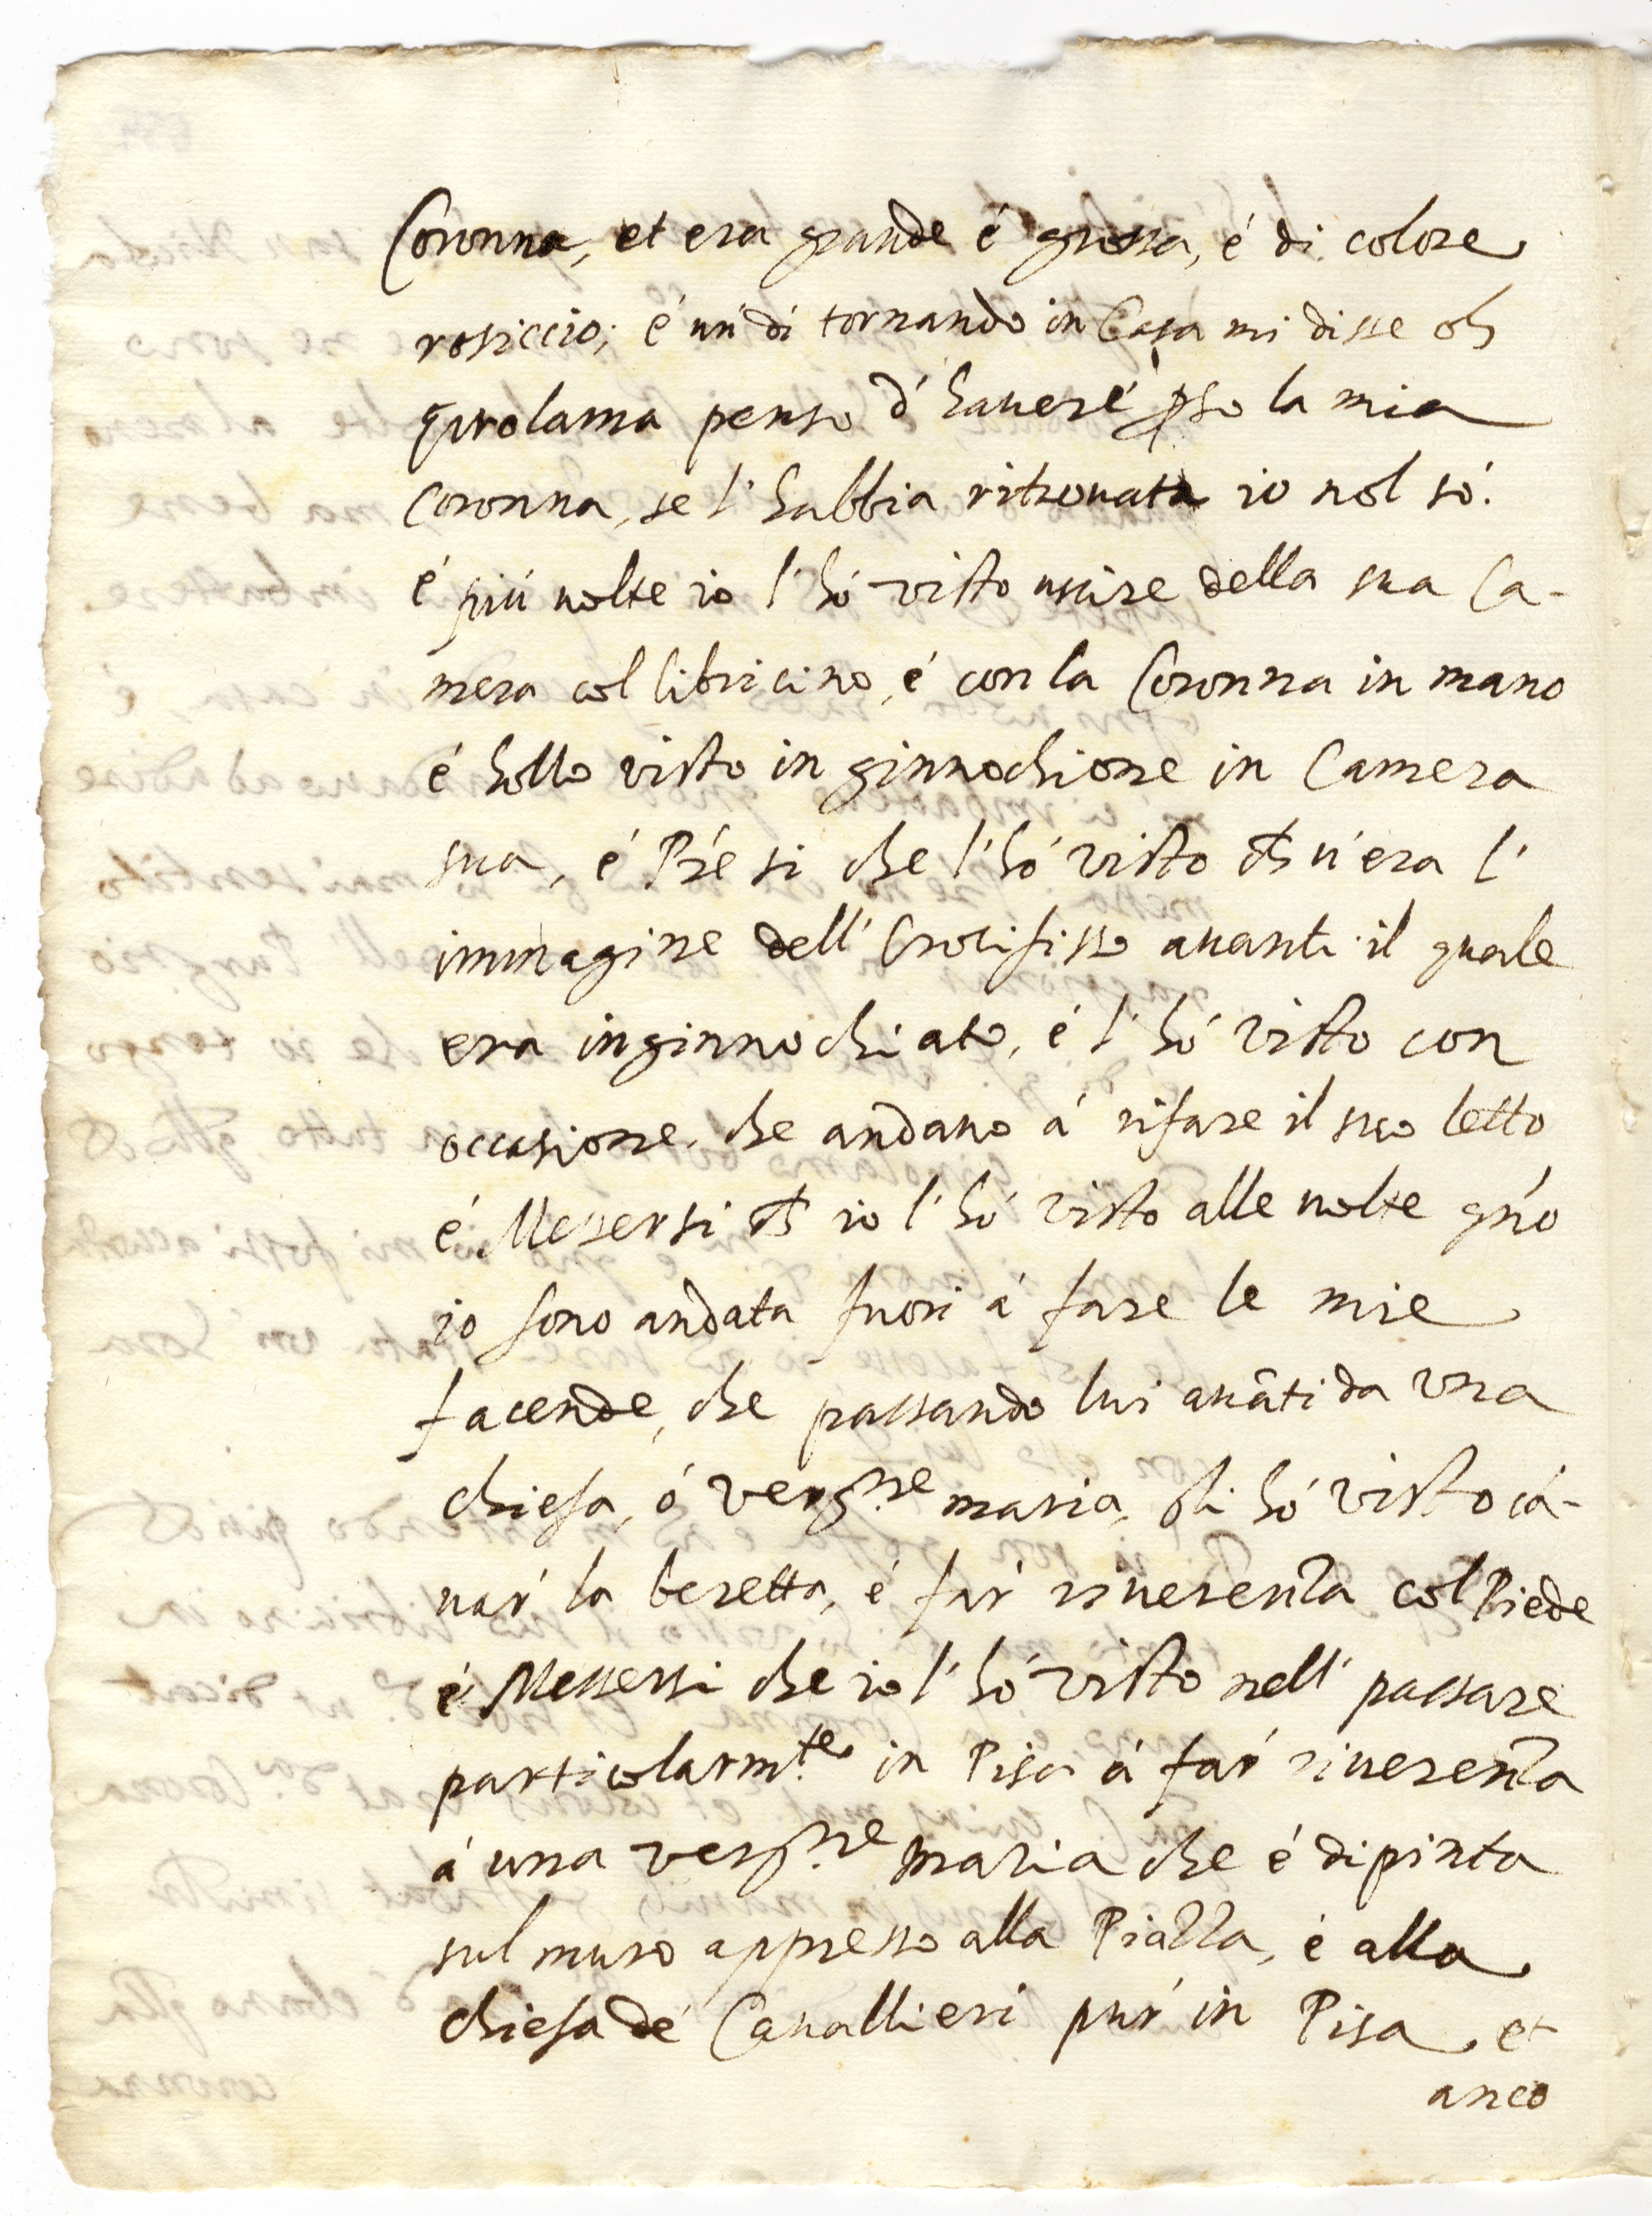 Coronna, et era grande é grossa, é di colore
rosiccio; é un di tornando in Casa mi disse oh
girolama penso d'hauere pso la mia
Coronna, se l'habbia ritrouata io nol só.
é piú uolte io l'hó visto uscire della sua Ca-
mera col libricino, é con la Coronna in mano
é hollo visto in ginnochione in Camera
sua, é P're si che l'hó visto ch u'era l'
immagine dell' Crocifisso auanti il quale
era inginnochiato, é l'hó visto con
occasione, che andauo á rifare il suo letto
é Messersi ch io l'hó visto alle uolte qn'o
io sono andata fuori á fare le mie
facende, che passando lui auāti da vna
chiesa, ó verg.ne maria, gli hó visto cá-
uar' la beretta, é far' riuerenza col Piede
é Messersi che io l'hó visto nell' passare
particolarm.te in Pisa á far' riuerenza
á una verg.ne maria che é dipinta
sul muro appresso alla Piazza, é alla
chiesa dé Cauallieri pur' in Pisa, et
anco